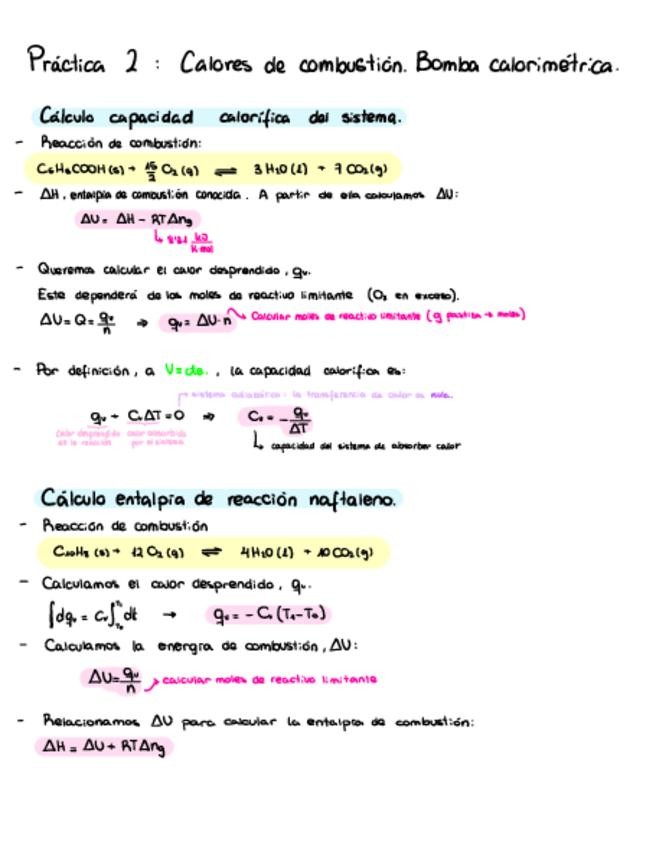 Práctica 2 : Calores de combustión. Bomba calorimétrica.
Cálculo capacidad calorífica del sistema.
- Reacción de combustión:
C₆H₅COOH (s) + 15/2 O₂ (g) ⇌ 3 H₂O (l) + 7 CO₂ (g)
- ΔH, entalpía de combustión conocida. A partir de ella calculamos ΔU:
ΔU = ΔH - RTΔng
- Queremos calcular el calor desprendido, qv.
Este dependerá de los moles de reactivo limitante (O₂ en exceso).
ΔU = Q = qv/n ⇒ qv = ΔU·n Calcular moles de reactivo limitante (g pastilla → moles)
- Por definición, a V = cte., la capacidad calorífica es:
sistema adiabático: la transferencia de calor es nula.
qv + CvΔT = 0 ⇒ Cv = - qv/ΔT
calor desprendido calor absorbido
en la reacción por el sistema
capacidad del sistema de absorber calor
Cálculo entalpía de reacción naftaleno.
- Reacción de combustión
C₁₀H₈ (s) + 12 O₂ (g) ⇌ 4 H₂O (l) + 10 CO₂ (g)
- Calculamos el calor desprendido, qv.
∫dqv = Cv∫dt → qv = - Cv (T₁ - T₀)
- Calculamos la energía de combustión, ΔU:
ΔU = qv/n calcular moles de reactivo limitante
- Relacionamos ΔU para calcular la entalpía de combustión:
ΔH = ΔU + RTΔng